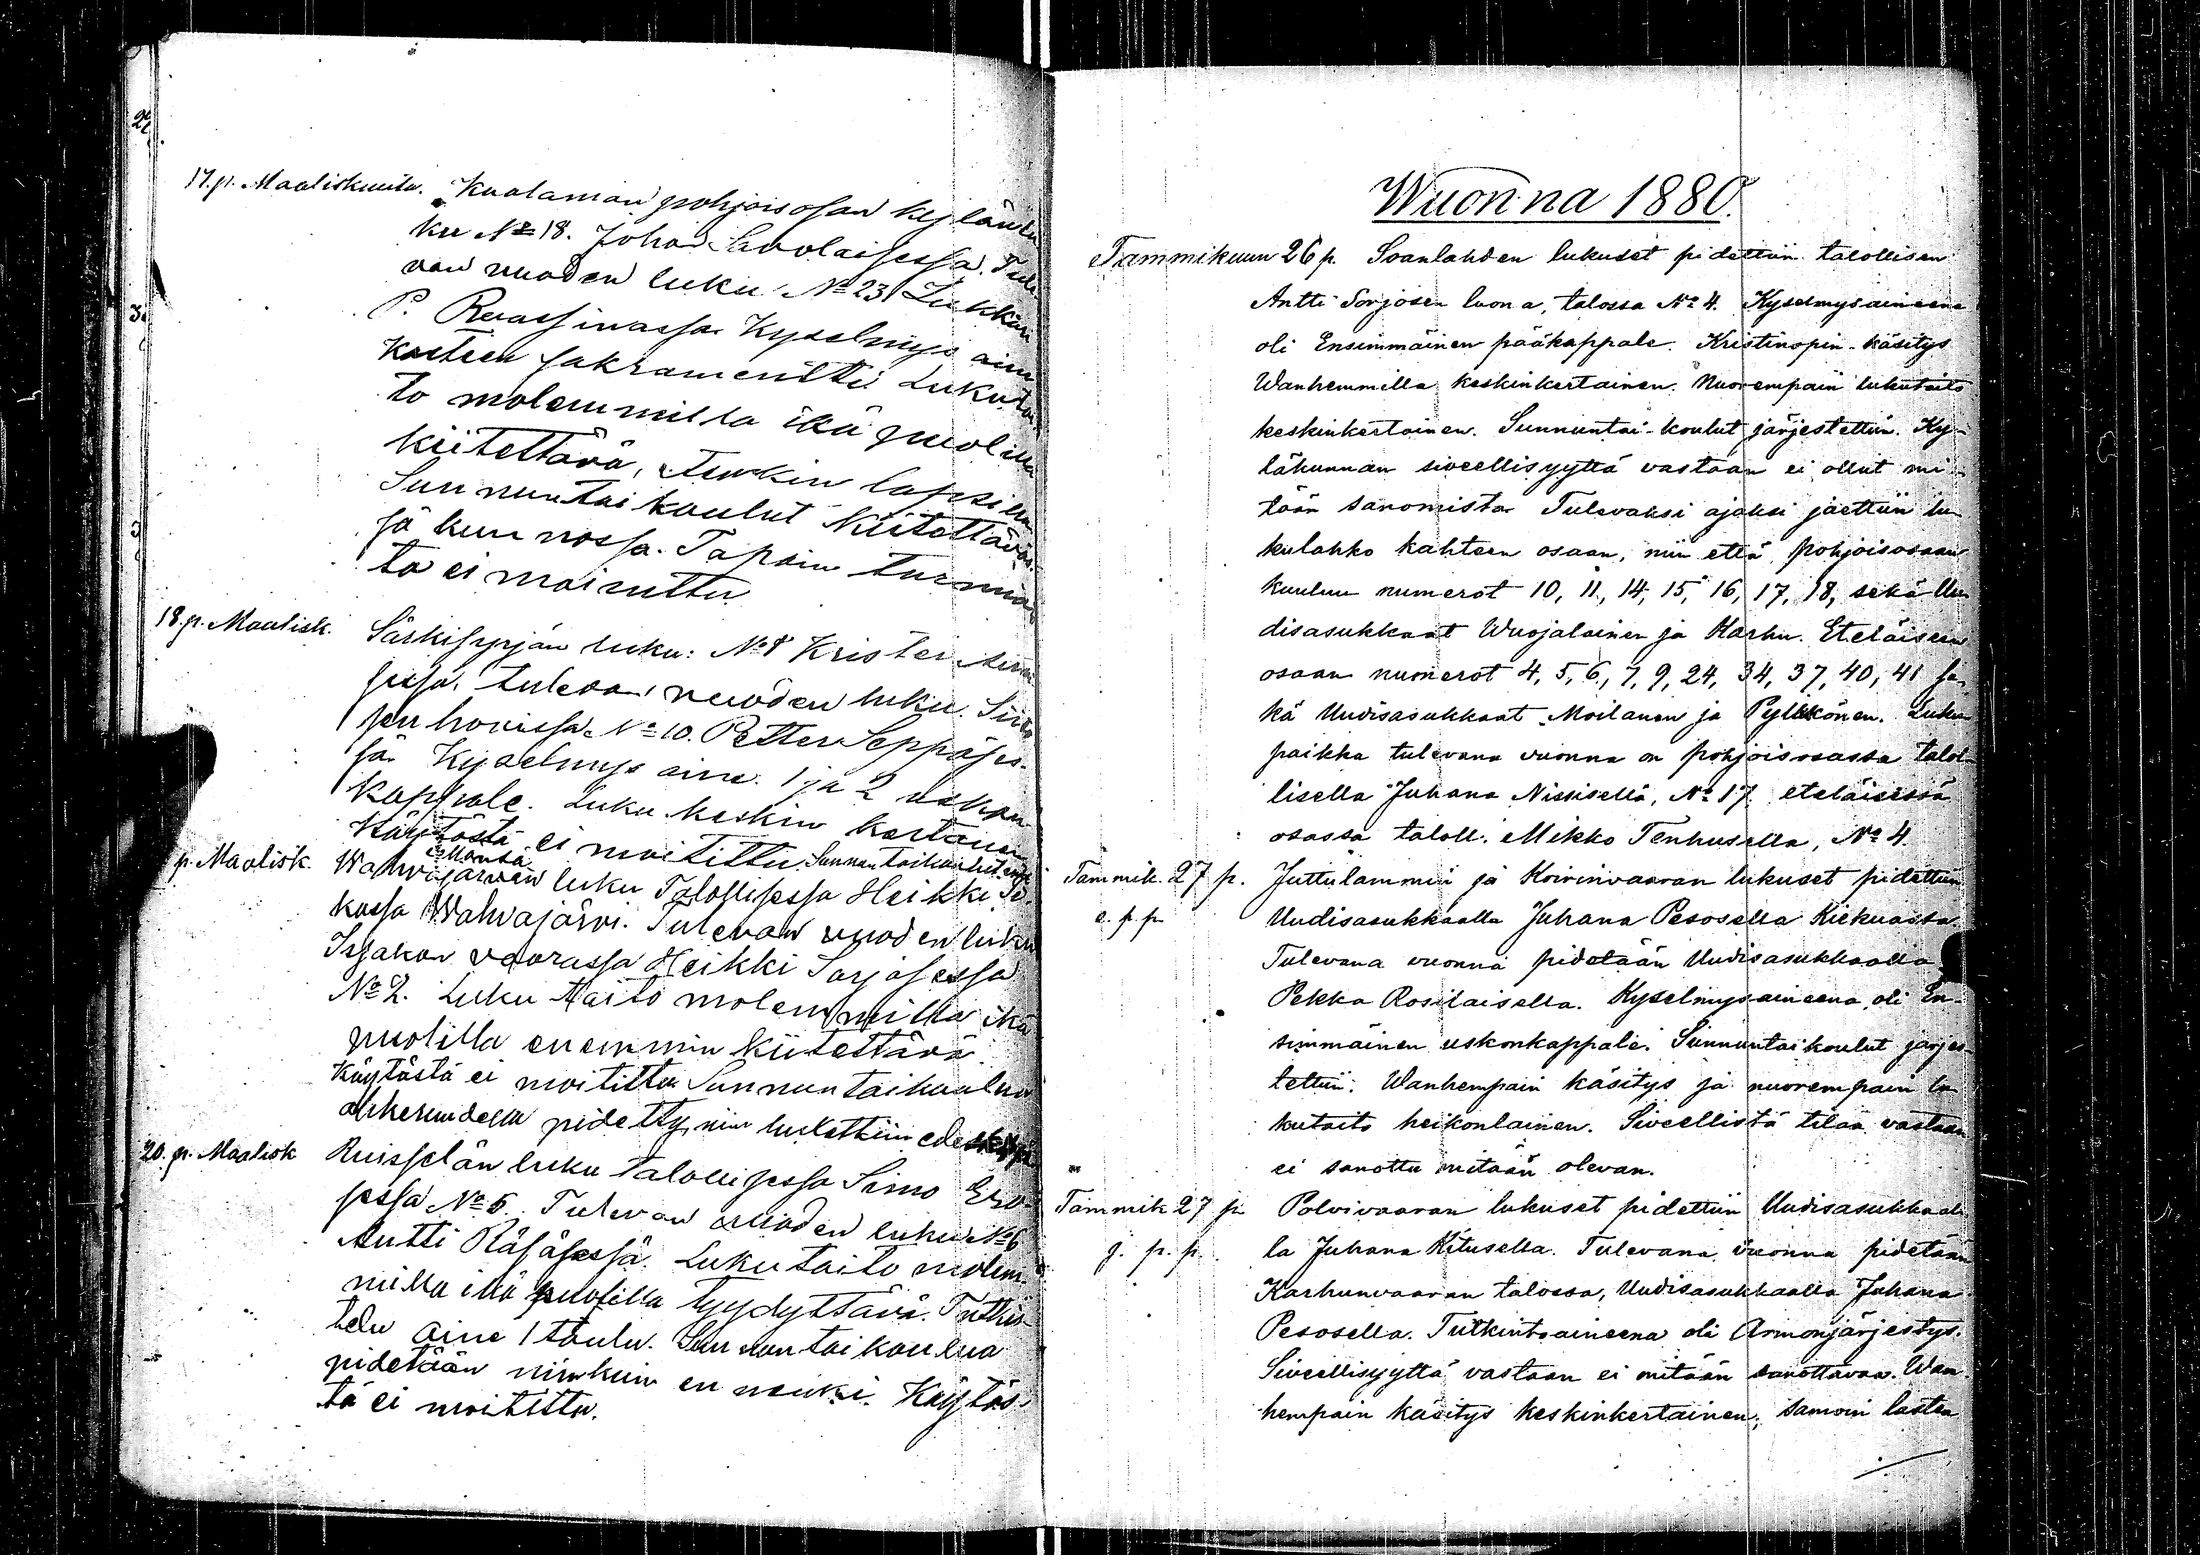 17.p. Maaliskuuta. Kuolaman pohjoisosan kylän lu
ku N= 18. Johan Savolaisessa. Tule
van vuoden luku N= 23 Liukkus
P. Raassinassa Kyselmys aine
kasteen sakramentti Lukutai
to molemmilla ikä puolilla
kiitettävä, etenkin lapsilla
Sunnuntai koulut kiitettäväs-
sä kunnossa. Tapain turmio
ta ei mainittu.
18.p. Maalisk. Särkisyrjän luku: N=8 Krister
sessa. tulevan vuoden luku.
sen hovissa N=10. Petter Seppäses-
sä. Kyselmys aine. 1 ja 2 uskon
kappale. Luku keskin kertanen
käytöstä ei moitittu. Sunnuntaikoulut
p. Maalisk. Wahvajärven luku Talollisessa Heikki
kossa Wahvajärvi. Tulevan vuoden luku
Issakan vaarassa Heikki Sarjosessa
N=2. Luku taito molemmilla ikä
puolilla enemmin kiitettävä.
Käytöstä ei moitittu Sunnuntaikoulua
ahkeruudella pidetty, niin luulettiin
20.p. Maalisk Ruisselän luku talollisessa Simo Ero-
sessa N=5. Tulevan vuoden luku N=6
Antti Räsäsessä. Lukutaito molem-
milla ikä puolilla tyydyttävä. Tutkis-
telu aine 1 taulu. Sunnuntaikoulua
pidetään niinkuin en neuki. Käytös-
tä ei moitittu.
Wuonna 1880.
Tammikuun 26 p. Soanlahden lukuset pidettiin talollisen
Antti Sorjosen luona, talossa N= 4. Kyselmysaineena
oli Ensimmäinen pääkappale. Kristinopin-käsitys
Wanhemmilla keskinkertainen. Nuorempain lukutaito
keskinkertainen. Sunnuntai-koulut järjestettiin. Ky-
läkunnan siveellisyyttä vastaan ei ollut mi-
tään sanomista. Tulevaksi ajaksi jaettiin lu-
kulahko kahteen osaan, niin että pohjoisosaan
kuuluu numerot 10, 11, 14, 15, 16, 17, 18, sekä Uu
disasukkaat Wuojalainen ja Karhu. Eteläiseen
osaan numerot 4, 5, 6, 7, 9, 24, 34, 37, 40, 41 se-
kä Uudisasukkaat Moilanen ja Pylkkönen. Luku
paikka tulevana vuonna on pohjoisosassa talol-
lisella Juhana Niskisellä, N= 17. eteläisessä
osassa taloll. Mikko Tenhusella, N= 4.
Tammik. 27 p. Juttulammin ja Koirinvaaran lukuset pidettiin
e. p. p. Uudisasukkaalla Juhana Pesosella Kiekuassa.
Tulevana vuonna pidetään Uudisasukkaalla
Pekka Rosilaisella. Kyselmysaineena oli En-
simmäinen uskonkappale. Sunnuntaikoulut järjes-
tettiin. Wanhempain käsitys ja nuorempain lu
kutaito heikonlainen. Siveellistä tilaa vastaan
ei sanottu mitään olevan.
Tammik 27 p. Polvivaaran lukuset pidettiin Uudisasukkaal-
j. p. p. la Juhana Kitusella. Tulevana vuonna pidetään
Karhunvaaran talossa, Uudisasukkaalla Juhana
Pesosella. Tutkintoaineena oli Armonjärjestys.
Siveellisyyttä vastaan ei mitään sanottavaa. Wan
hempain käsitys keskinkertainen, samoin lasten